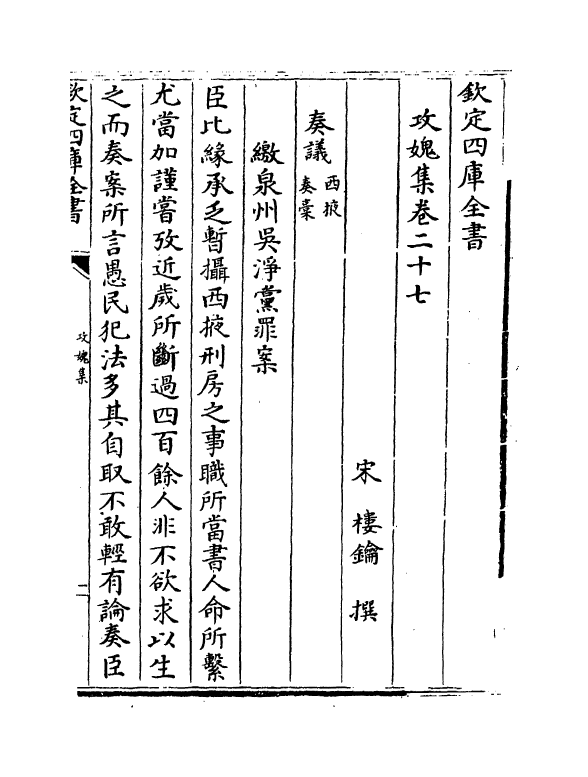 欽定四庫全書
攻媿集卷二十七
宋 樓鑰 撰
奏議 西掖
奏藁
繳泉州吳淨黨罪案
臣比緣承乏暫攝西掖刑房之事職所當書人命所繫
尤當加謹嘗攷近歲所斷過四百餘人非不欲求以生
之而奏案所言愚民犯法多其自取不敢輕有論奏臣
欽定四庫全書
攻媿集